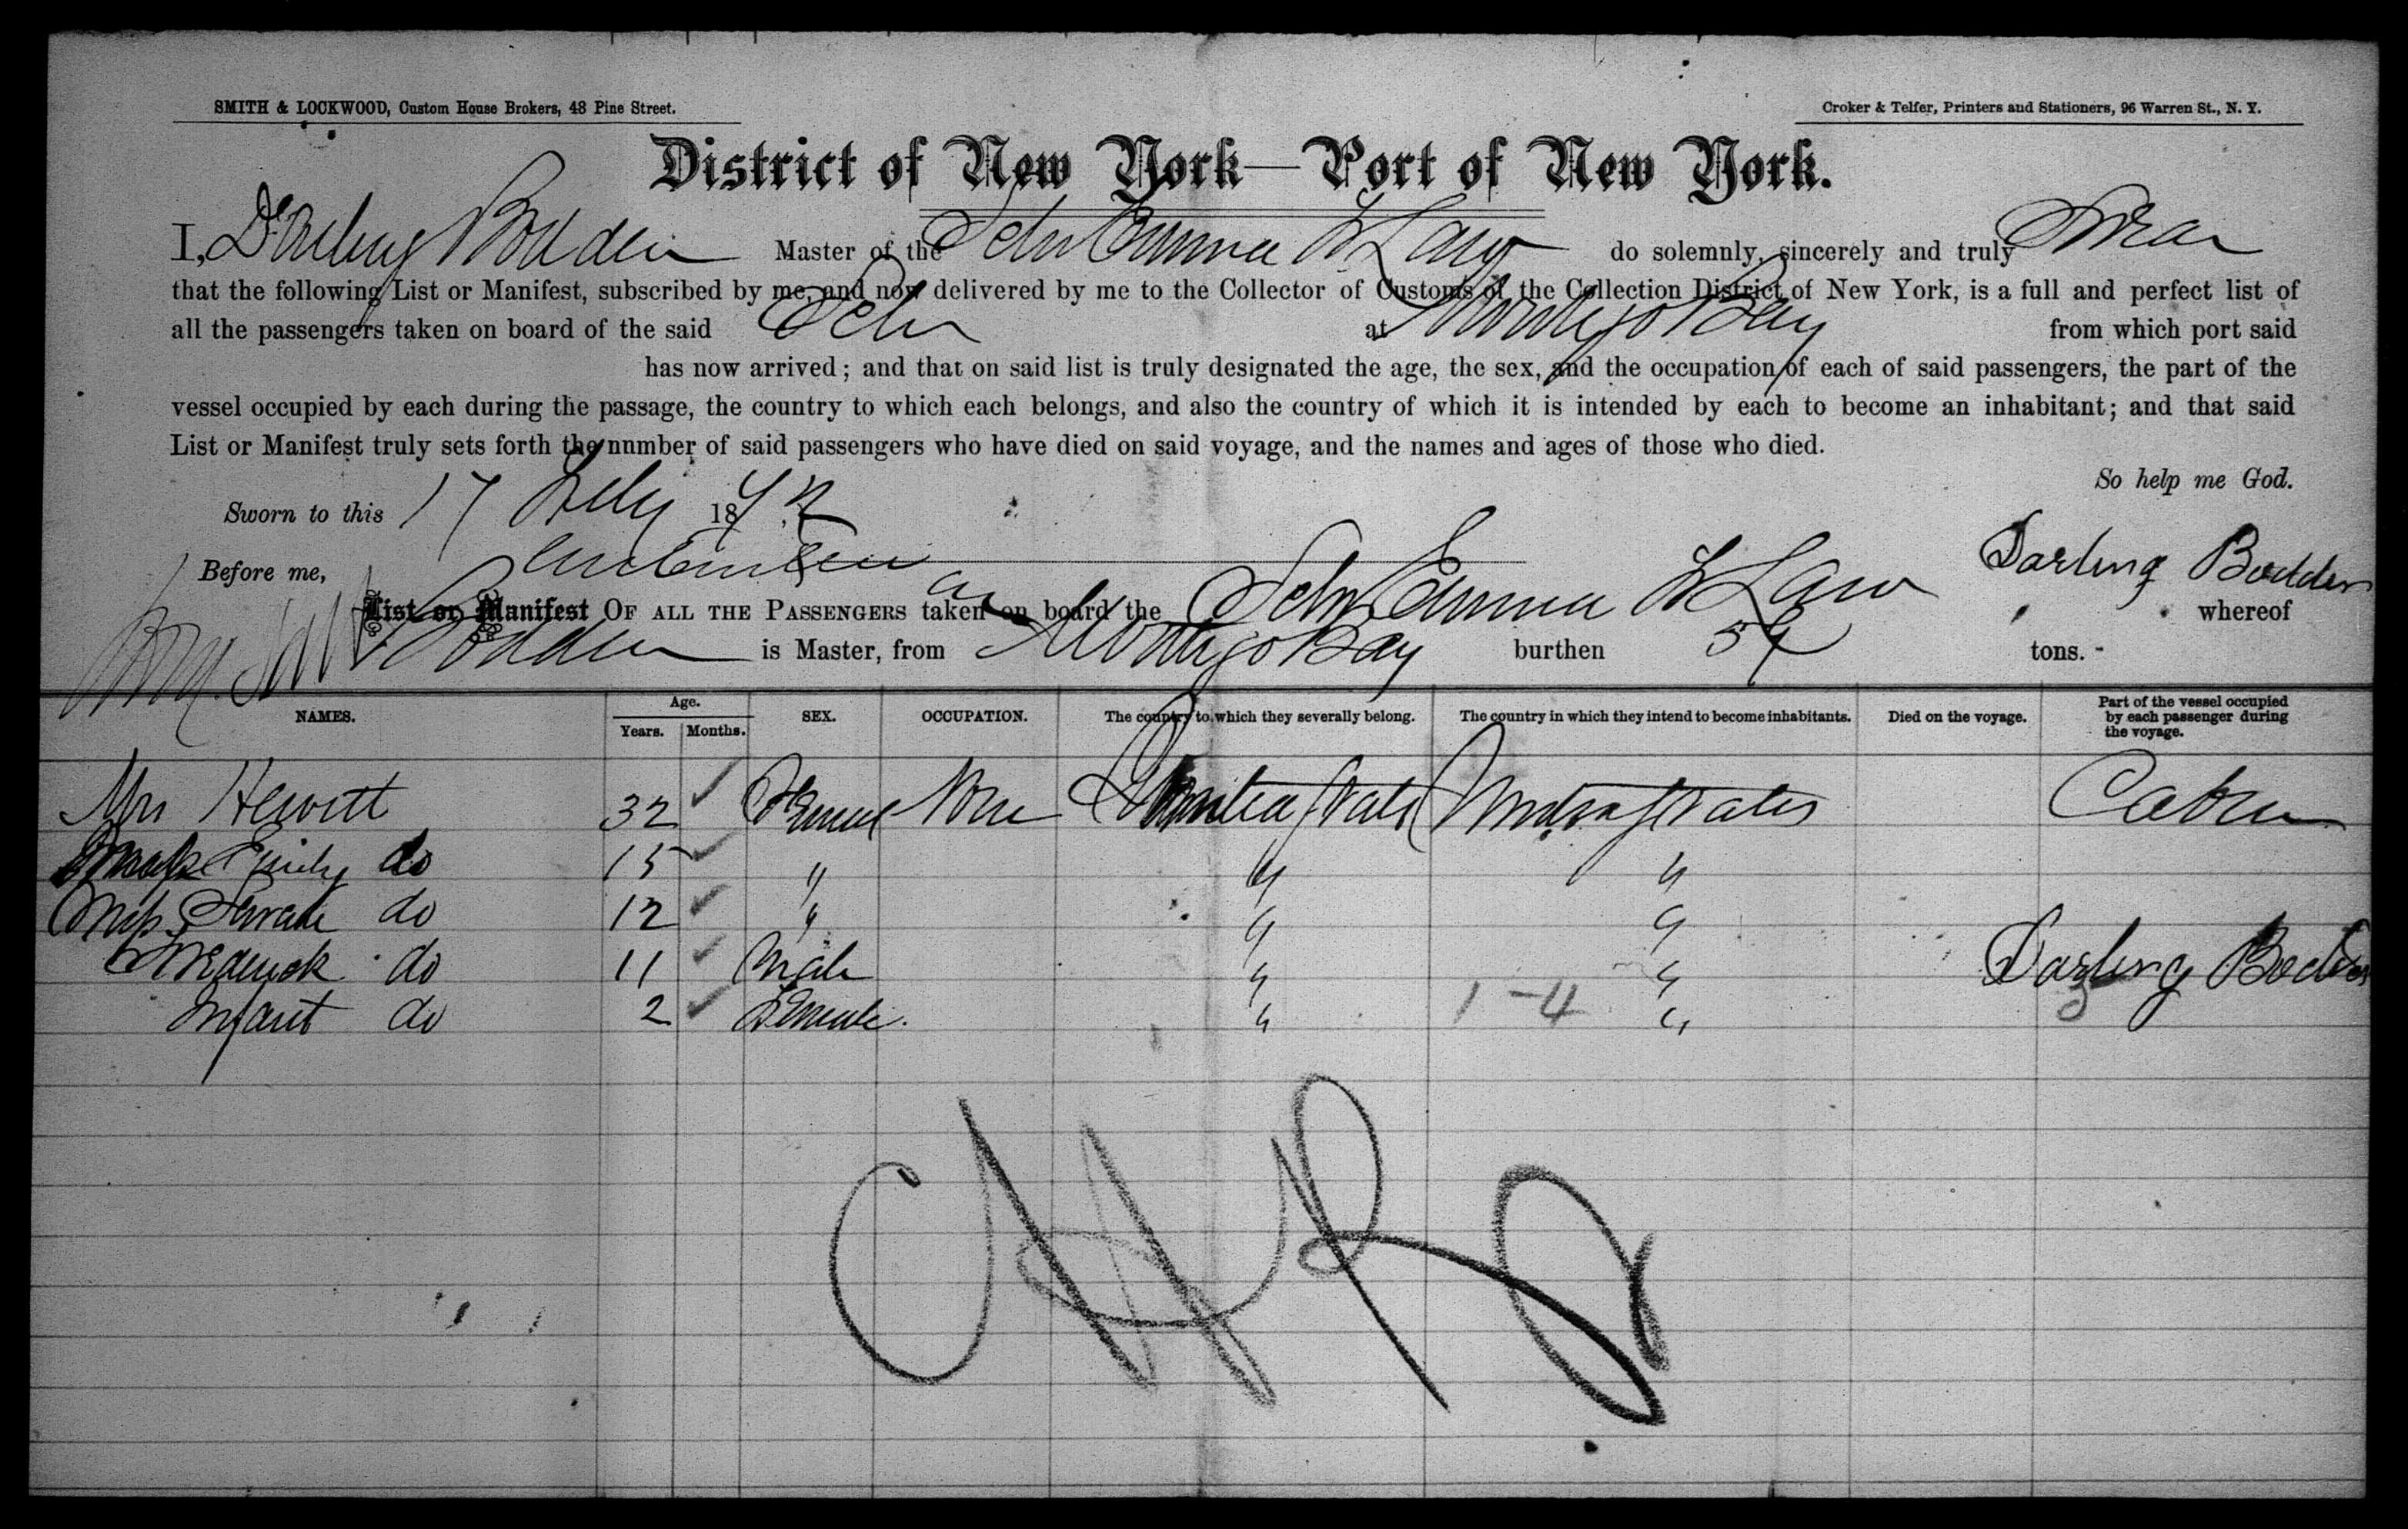 SMITH & LOCKWOOD, Custom House Brokers, 48 Pine Street.
Croker & Telfer, Printers and Stationers, 96 Warren St., N. Y.
District of New York—Port of New York.
I, Darling Bodden Master of the Schr Emma L Law do solemnly, sincerely and truly Swear
that the following List or Manifest, subscribed by me, and now delivered by me to the Collector of Customs of the Collection District of New York, is a full and perfect list of
all the passengers taken on board of the said Schr at Montego Bay from which port said
has now arrived; and that on said list is truly designated the age, the sex, and the occupation of each of said passengers, the part of the
vessel occupied by each during the passage, the country to which each belongs, and also the country of which it is intended by each to become an inhabitant; and that said
List or Manifest truly sets forth the nnmber of said passengers who have died on said voyage, and the names and ages of those who died.
So help me God.
Sworn to this 17 July 18
Before me,
Darling Bodden
List or Manifest OF ALL THE PASSENGERS taken on board the Schr Emma L Law whereof
Bodden is Master, from Montego Bay burthen tons.
NAMES. Age. Years. Months. SEX. OCCUPATION. The country to which they severally belong. The country in which they intend to become inhabitants. Died on the voyage. Part of the vessel occupied by each passenger during the voyage.
Mrs Hewett 32 Female None United States United States Cabin
Miss Emily do 15 " " "
Miss Sarah do 12 " " "
Frederick do 11 Male " "
Darling Bodden
Infant do 2 Female " 1-4 "